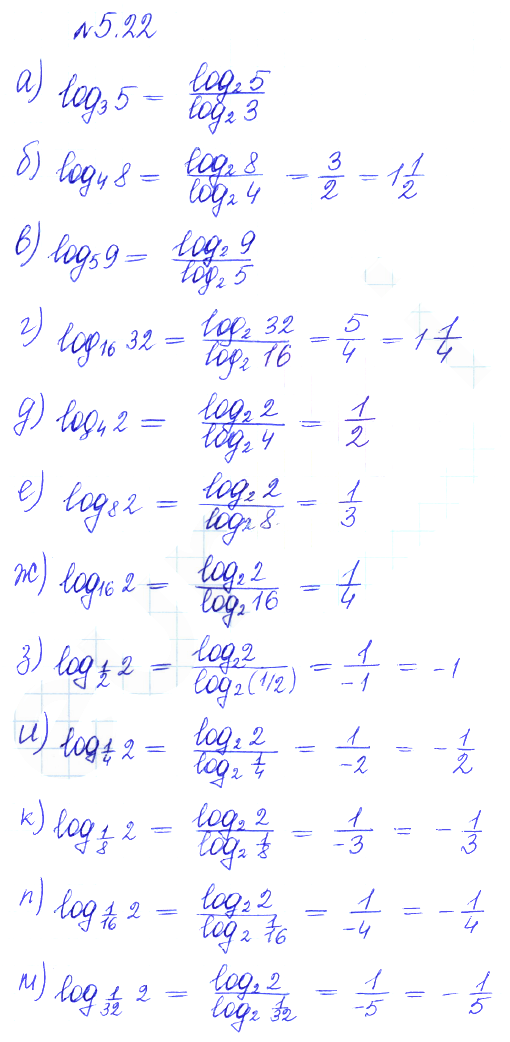 №5.22
а) log₃ 5 = log₂ 5 / log₂ 3
б) log₄ 8 = log₂ 8 / log₂ 4 = 3/2 = 1 1/2
в) log₅ 9 = log₂ 9 / log₂ 5
г) log₁₆ 32 = log₂ 32 / log₂ 16 = 5/4 = 1 1/4
д) log₄ 2 = log₂ 2 / log₂ 4 = 1/2
е) log₈ 2 = log₂ 2 / log₂ 8 = 1/3
ж) log₁₆ 2 = log₂ 2 / log₂ 16 = 1/4
з) log_(1/2) 2 = log₂ 2 / log₂ (1/2) = 1/-1 = -1
и) log_(1/4) 2 = log₂ 2 / log₂ 1/4 = 1/-2 = -1/2
к) log_(1/8) 2 = log₂ 2 / log₂ 1/8 = 1/-3 = -1/3
л) log_(1/16) 2 = log₂ 2 / log₂ 1/16 = 1/-4 = -1/4
м) log_(1/32) 2 = log₂ 2 / log₂ 1/32 = 1/-5 = -1/5